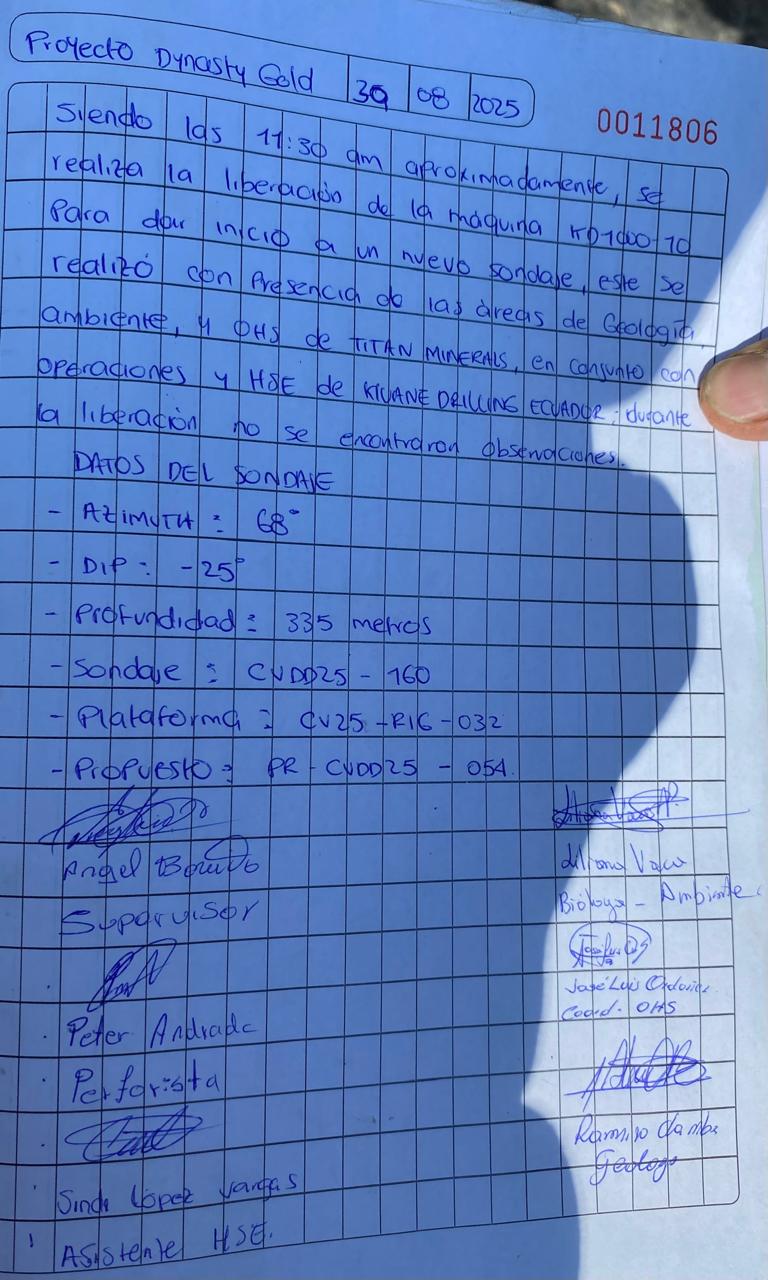 Proyecto Dynasty Gold 30 08 2025
0011806
Siendo las 11:30 am aproximadamente, se
realiza la liberación de la maquina KD1000-10
Para dar inicio a un nuevo sondaje, este se
realizó con Presencia de las áreas de Geología,
ambiente, y OHS de TITAN MINERALS, en conjunto con
operaciones y HSE de KLUANE DRILLING ECUADOR; durante
la liberación no se encontraron Observaciones.
DATOS DEL SONDAJE
- AZIMUTH : 68°
- DIP : -25°
- Profundidad : 335 metros
- Sondaje : CVDD25 - 160
- Plataforma : CV25 - RIG - 032
- Propuesto : PR - CVDD25 - 054.
Angel
Supervisor
Liliana Vaca
Bióloga - Ambiente
Peter Andrade
Perforista
José Luis Ordoñez
Coord. OHS
Sindi López Vargas
Asistente HSE.
Ramiro
Geologo